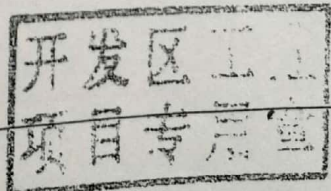 开发区工
项目专用章